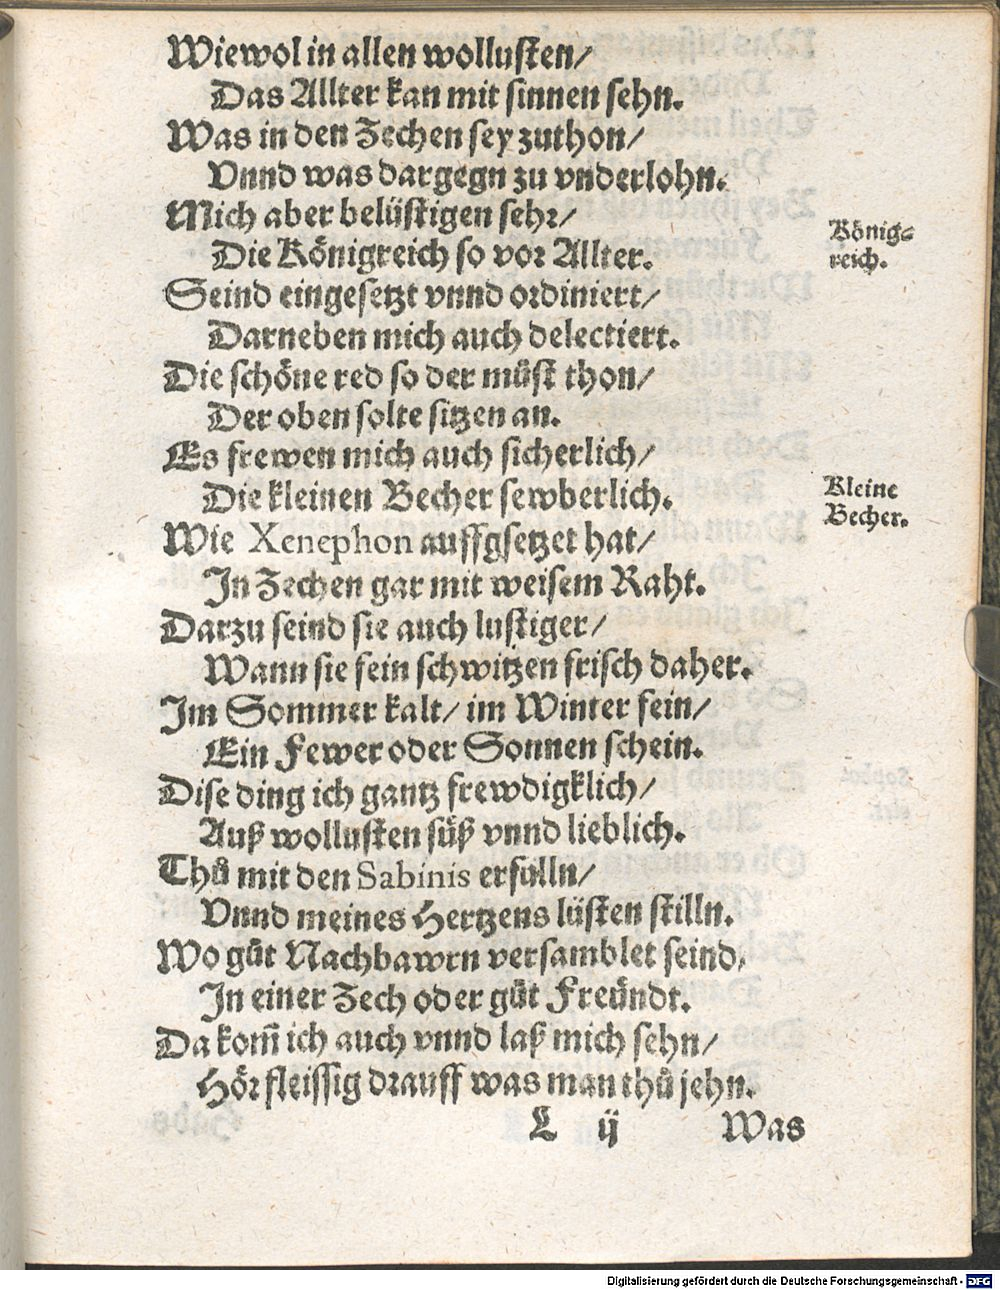 Wiewol in allen wollusten/
Das Allter kan mit sinnen sehn.
Was in den Zechen sey zuthon/
Vnnd was dargegn zu vnderlohn.
Mich aber belüstigen sehr/
Die Königreich so vor Allter.
König=
reich.
Seind eingesetzt vnnd ordiniert/
Darneben mich auch delectiert.
Die schöne red so der müst thon/
Der oben solte sitzen an.
Es frewen mich auch sicherlich/
Die kleinen Becher sewberlich.
Kleine
Becher.
Wie Xenephon auffgsetzet hat/
In Zechen gar mit weisem Raht.
Darzu seind sie auch lustiger/
Wann sie fein schwitzen frisch daher.
Im Sommer kalt/ im Winter fein/
Ein Fewer oder Sonnen schein.
Dise ding ich gantz frewdigklich/
Auß wollusten süß vnnd lieblich.
Thů mit den Sabinis erfülln/
Vnnd meines Hertzens lüsten stilln.
Wo gůt Nachbawrn versamblet seind,
In einer Zech oder gůt Freündt.
Da kom̃ ich auch vnnd laß mich sehn/
Hör fleissig drauff was man thů jehn.
L ij Was
Digitalisierung gefördert durch die Deutsche Forschungsgemeinschaft - DFG